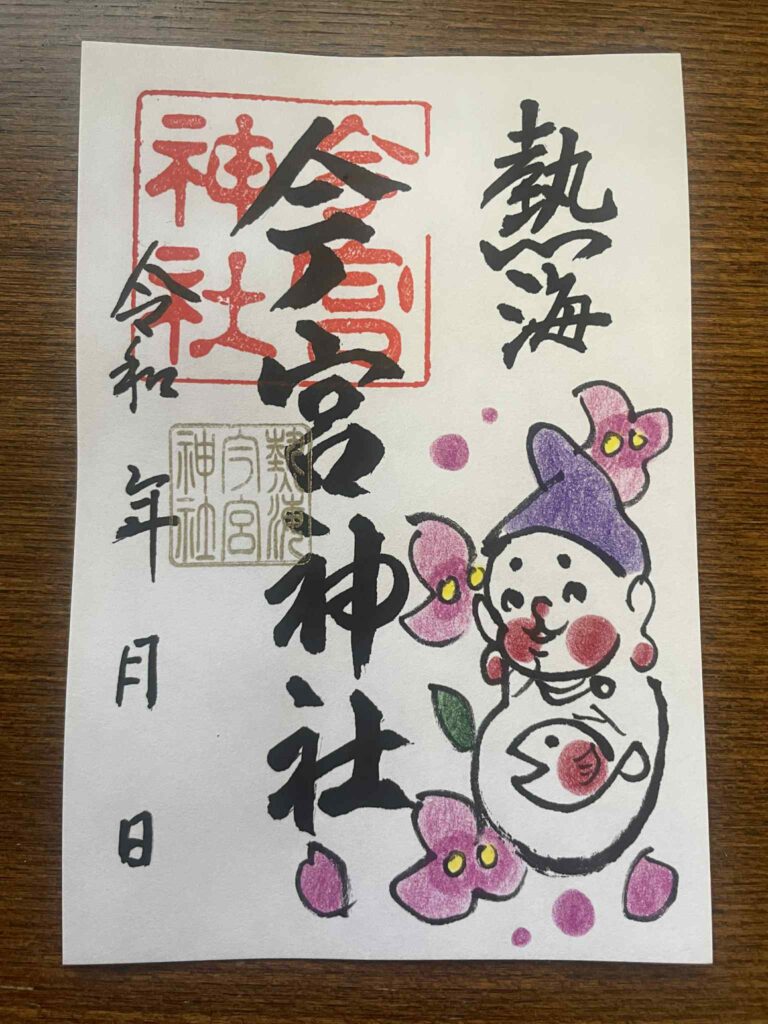 熱海
今宮神社
令和 年 月 日
今宮
神社
熱海
今宮
神社